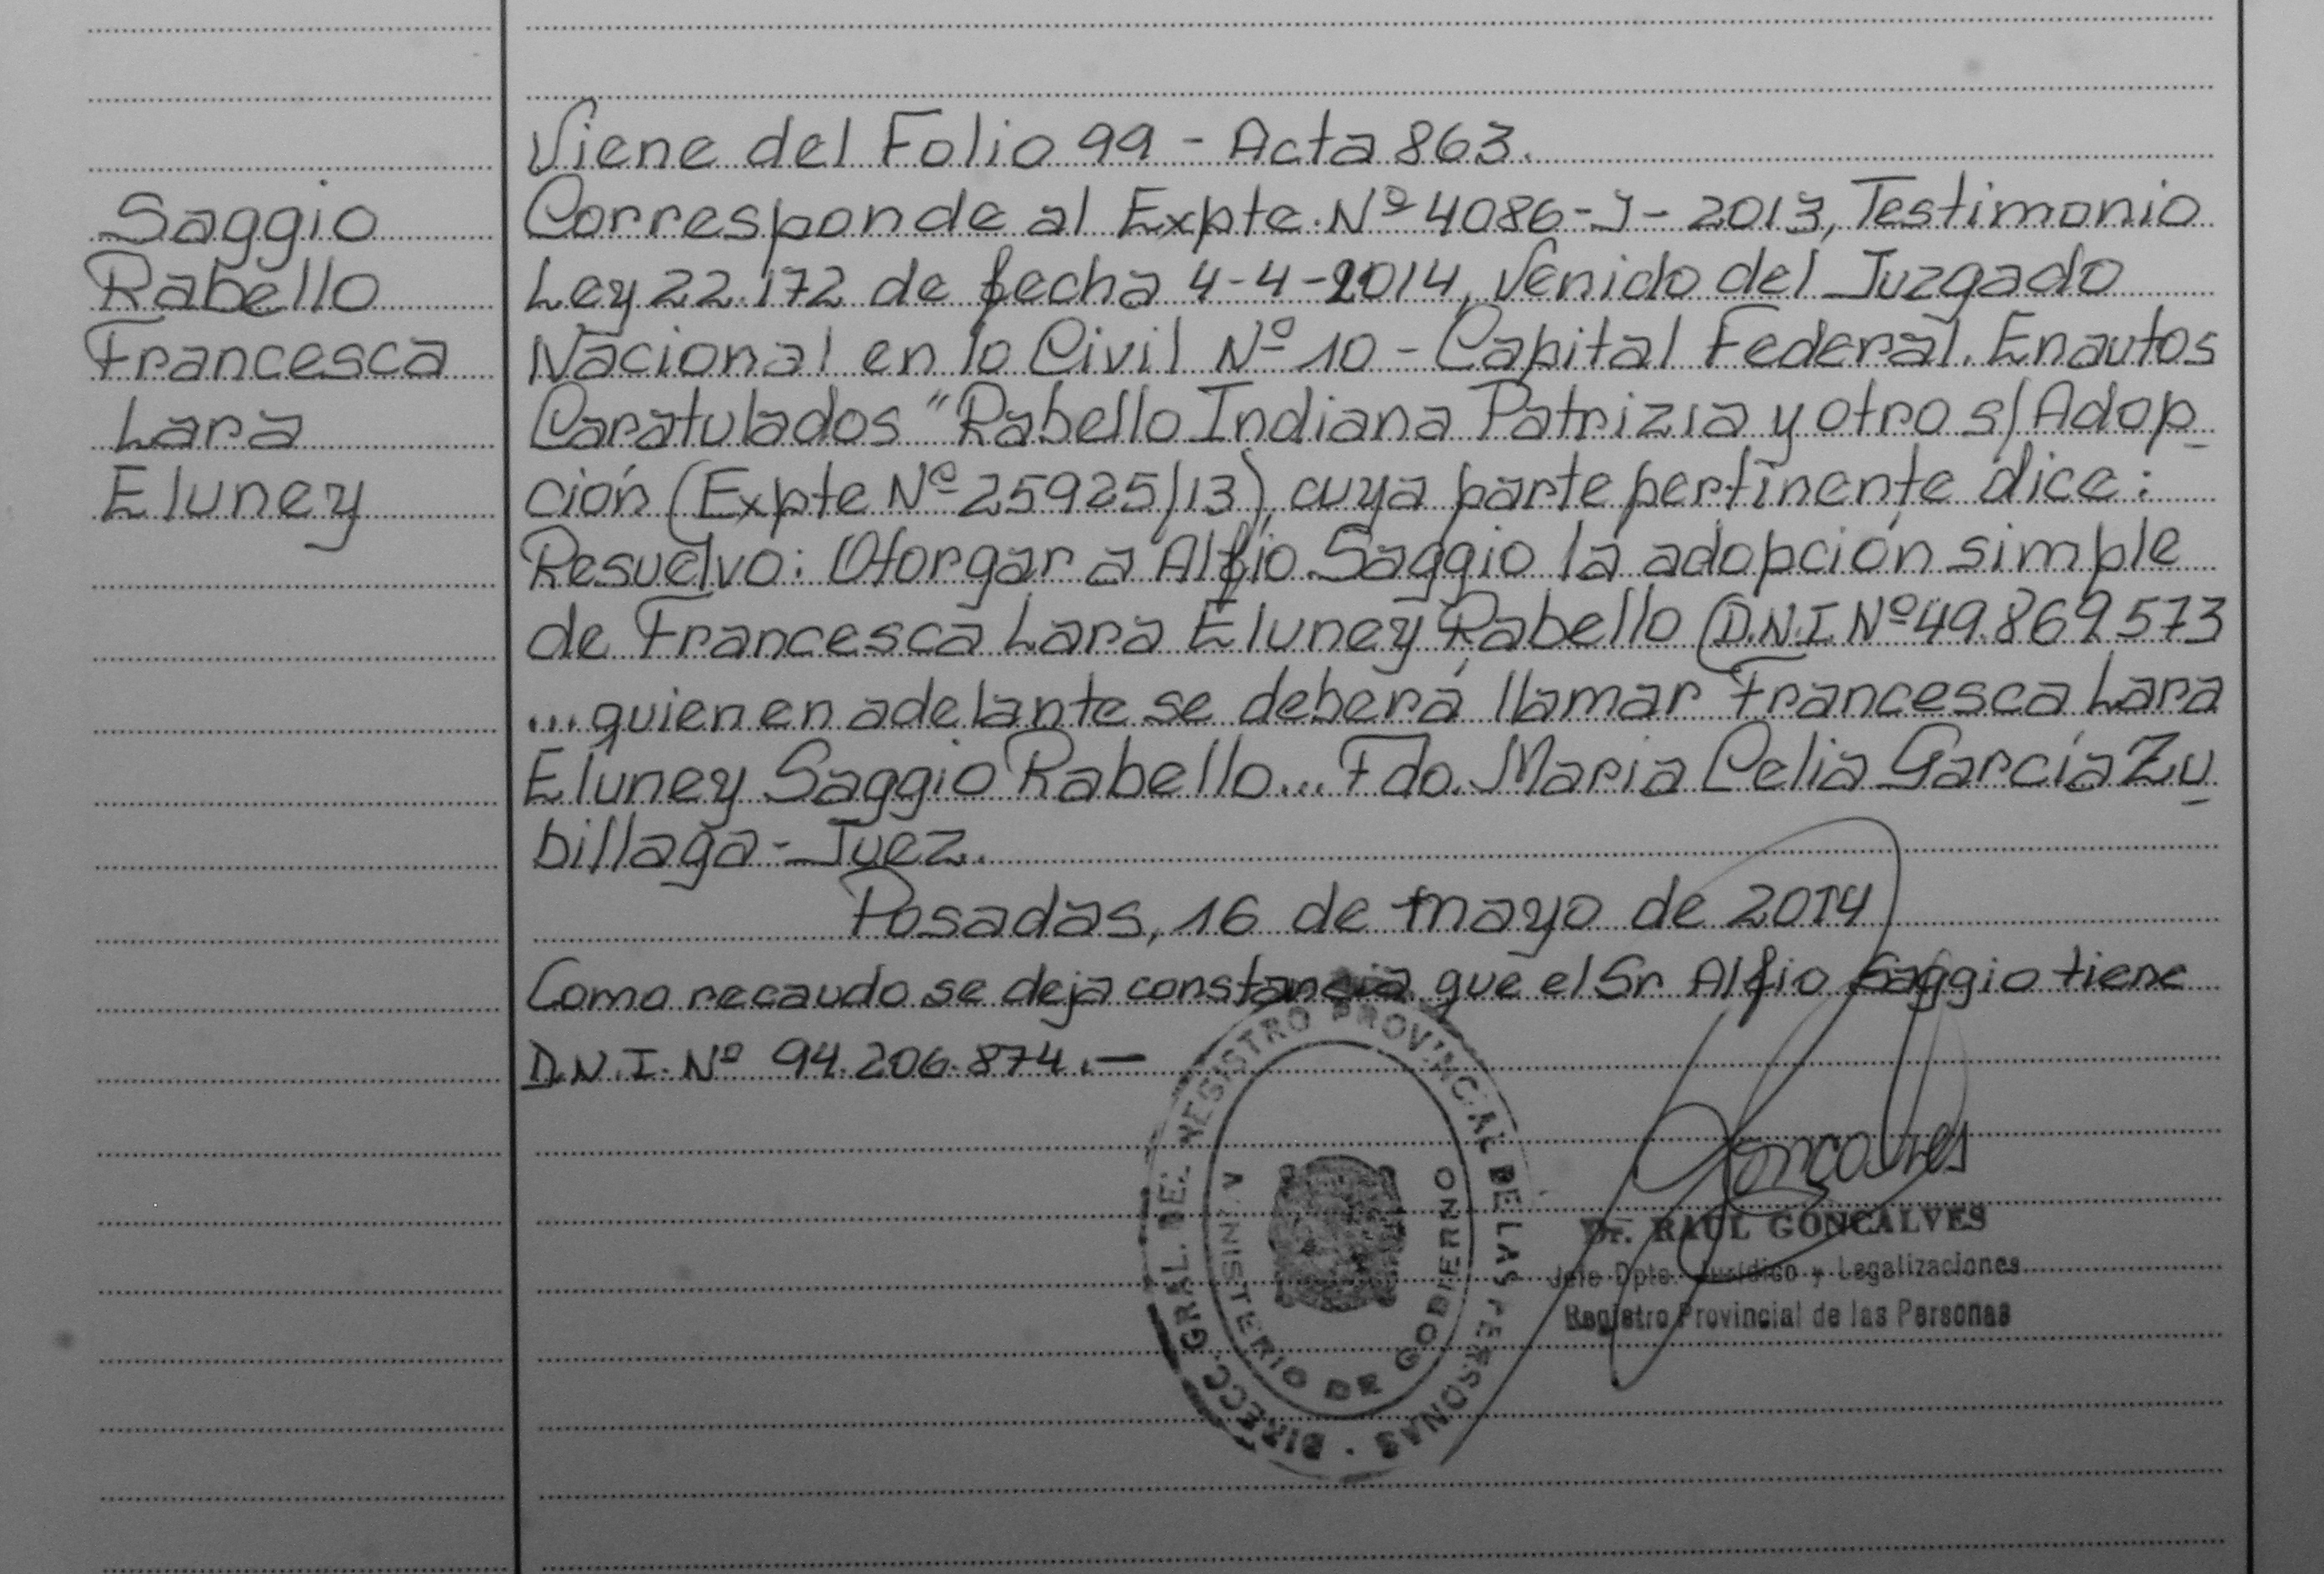 Saggio
Rabello
Francesca
Lara
Eluney
Viene del Folio 99 - Acta 863.
Corresponde al Expte. Nº 4086-J-2013, Testimonio
Ley 22.172 de fecha 4-4-2014, Venido del Juzgado
Nacional en lo Civil Nº 10 - Capital Federal. En autos
Caratulados "Rabello Indiana Patrizia y otro s/ Adop
ción (Expte Nº 25925/13), cuya parte pertinente dice:
Resuelvo: Otorgar a Alfio Saggio la adopción simple
de Francesca Lara Eluney Rabello (D.N.I. Nº 49.869.573
...quien en adelante se deberá llamar Francesca Lara
Eluney Saggio Rabello... Fdo. Maria Celia García Zu
billaga - Juez.
Posadas, 16 de mayo de 2014
Como recaudo se deja constancia que el Sr Alfio Saggio tiene
D.N.I. Nº 94.206.874.-
DIRECC. GRAL. DEL REGISTRO PROVINCIAL DE LAS PERSONAS
MINISTERIO DE GOBIERNO
Goncalves
Dr. RAUL GONCALVES
Jefe Dpto. Jurídico y Legalizaciones
Registro Provincial de las Personas